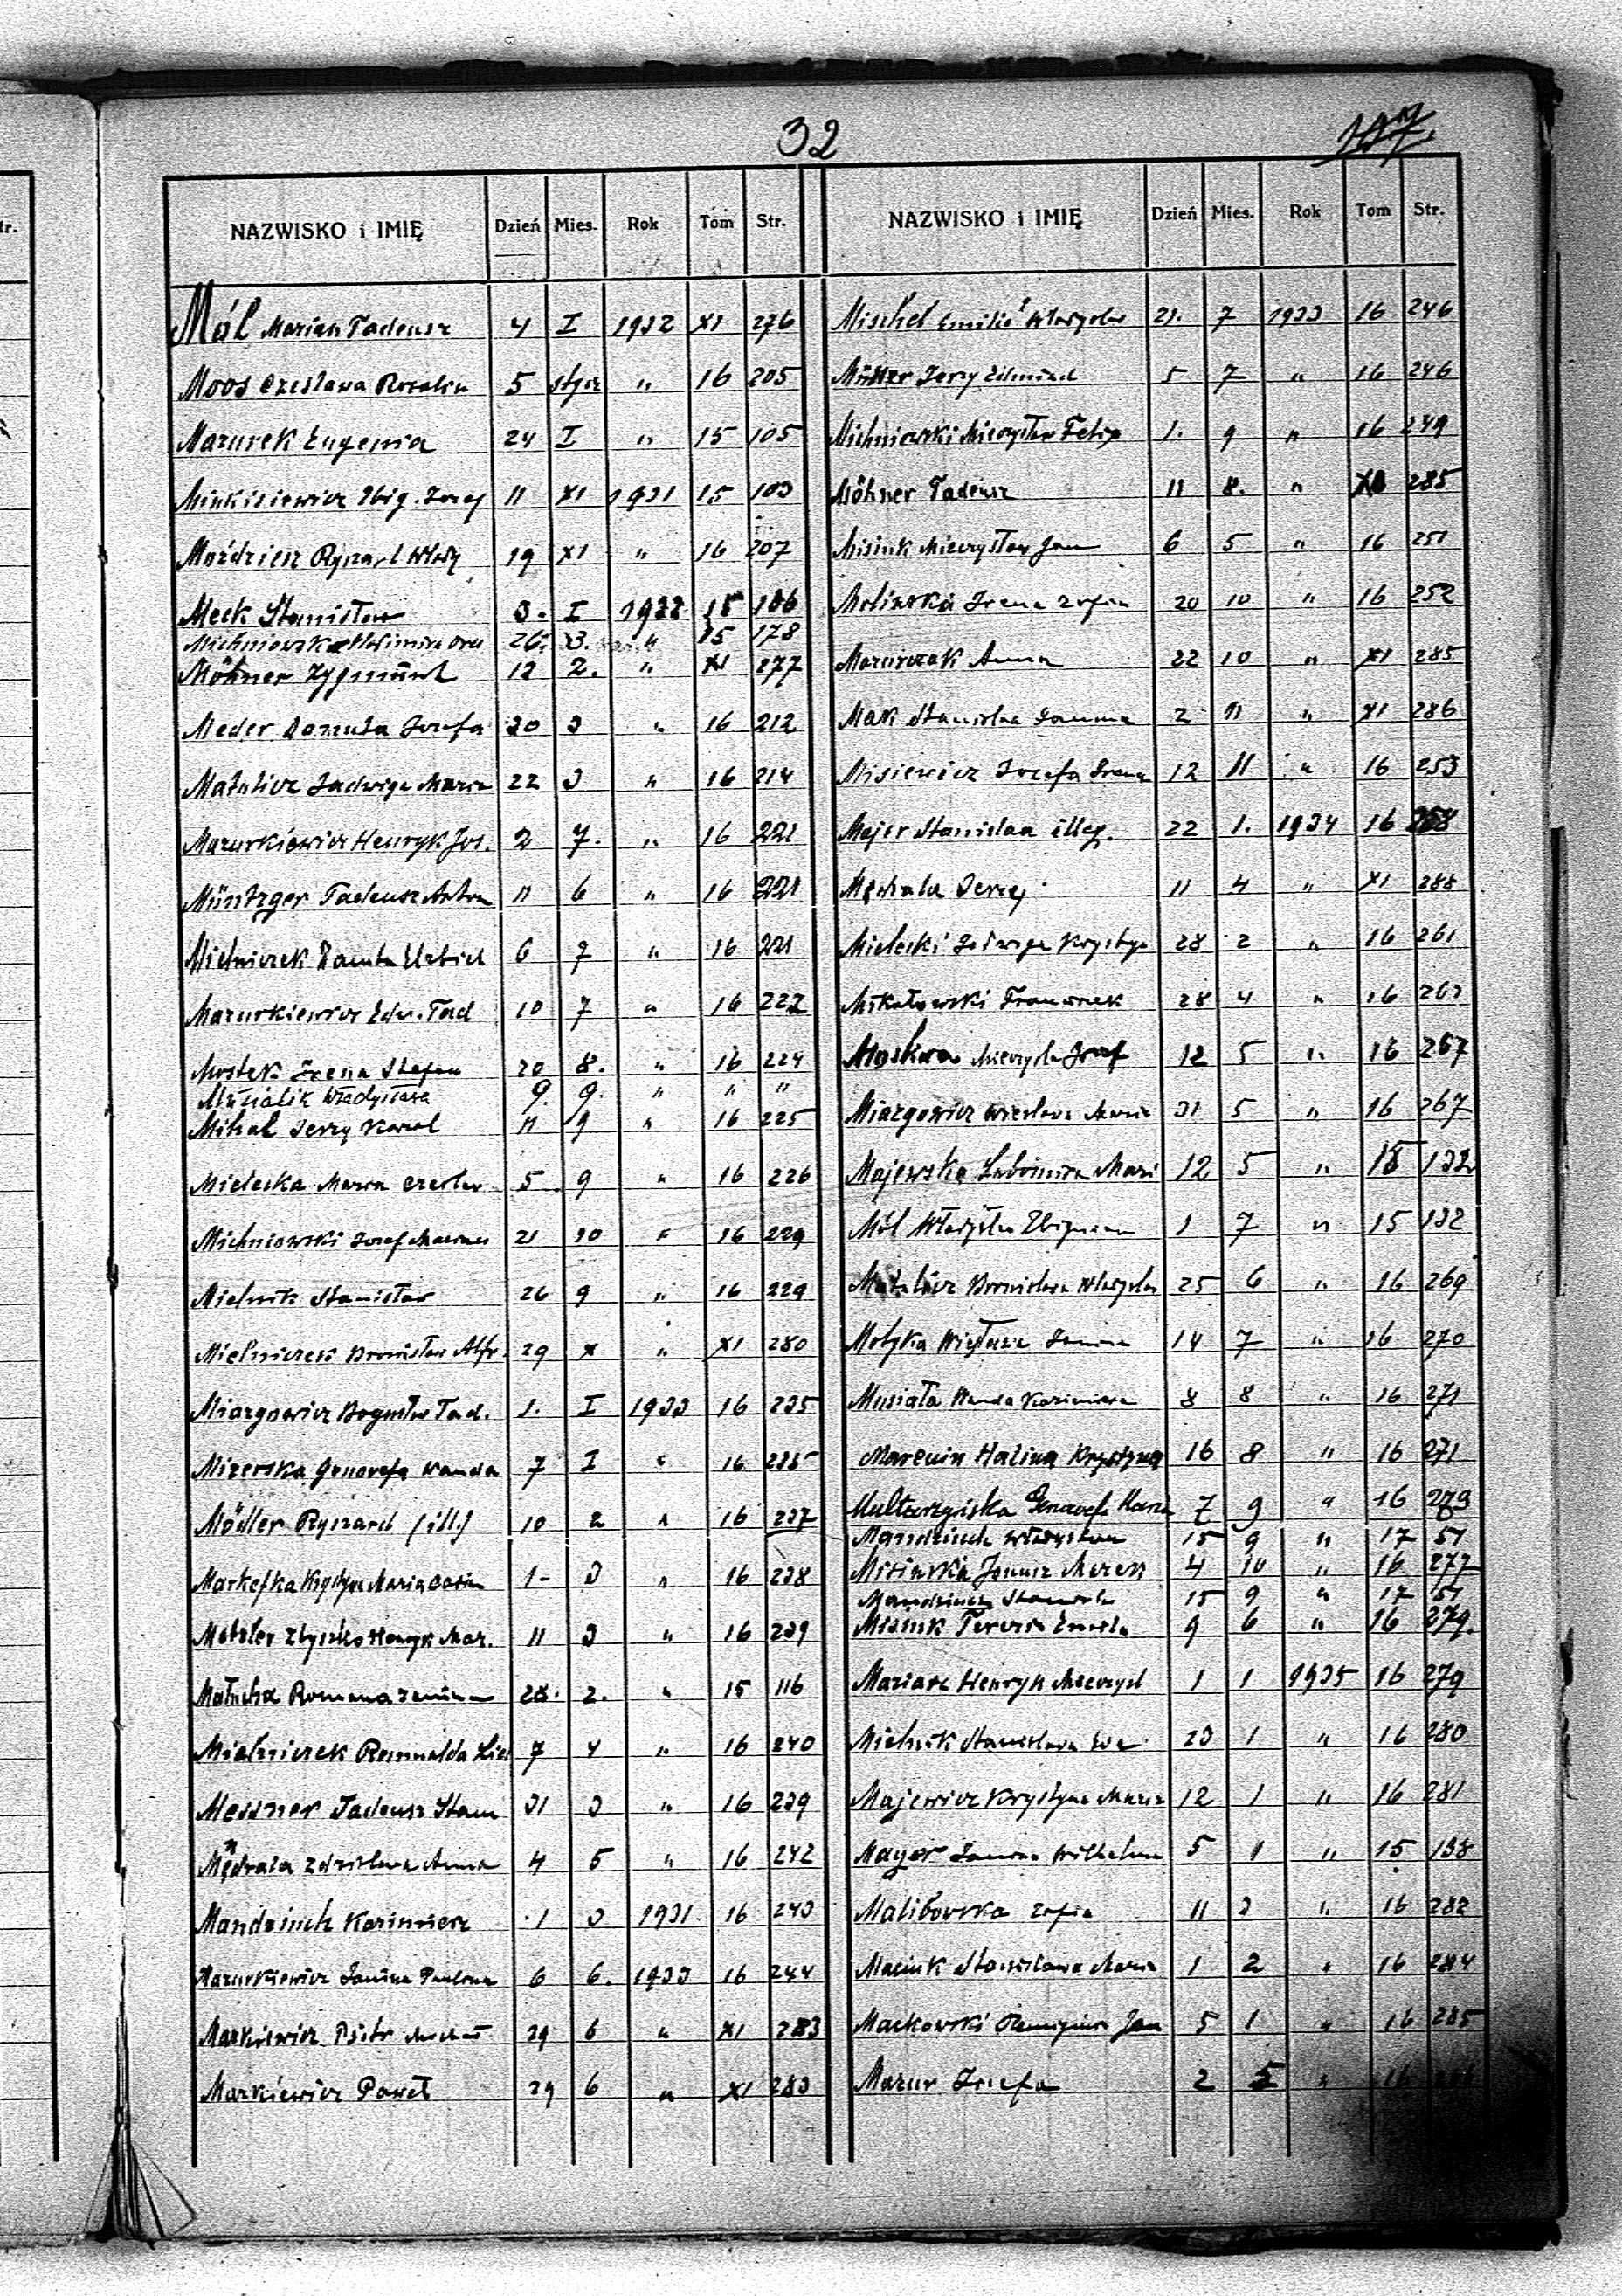 32
107
tr.
NAZWISKO i IMIĘ Dzień Mies. Rok Tom Str.
Mól Marian Tadeusz 4 I 1932 XI 276
Moos Czesława Rozalia 5 stycz " 16 205
Mazurek Eugenia 24 I " 15 105
Minkisiewicz Zbig. Józef 11 XI 1931 15 103
Moździerz Ryszard Włady 19 XI " 16 207
Meck Stanisław 3. I 1932 15 106
Michniowska 26. 3. " 15 178
Möhner Zygmunt 12 2. " XI 277
Meder Danuta Józefa 20 3 " 16 212
Matulicz Jadwiga Maria 22 3 " 16 214
Mazurkiewicz Henryk Joz. 2 7. " 16 221
Müntzger Tadeusz Anton 11 6 " 16 221
Mielniczek Danuta 6 7 " 16 221
Mazurkiewicz Edw. Tad 10 7 " 16 222
Mostek Irena Stefan 20 8. " 16 224
Musialik Władysława 9. 9. " " "
Mihal Jerzy Karol 11 9 " 16 225
Mielecka Maria Czesław 5 9 " 16 226
Michniowski Józef 21 10 " 16 229
Mielnik Stanisław 26 9 " 16 229
Mielniczek Bronisław Alfr. 29 X " XI 280
Miazgowicz Bogusław Tad. 1. I 1933 16 235
Mizerska Genowefa Wanda 7 I " 16 235
Mödler Ryszard (ill.) 10 2 " 16 237
Markefka Krystyna Maria 1- 3 " 16 238
Metzler Zbyszko Henryk Mar. 11 3 " 16 239
Małucha Romana Janina 28. 2. " 15 116
Mielniczek Romualda 7 4 " 16 240
Messner Tadeusz Stan 31 3 " 16 239
Mędrala Zdzisława Anna 4 5 " 16 242
Mandziuch Kazimierz 1 3 1931 16 243
Mazurkiewicz Janina Paulina 6 6. 1933 16 244
Markiewicz Piotr Michał 29 6 " XI 283
Markiewicz Paweł 29 6 " XI 283
NAZWISKO i IMIĘ Dzień Mies. Rok Tom Str.
Mischel Emilia Władysław 21. 7 1933 16 246
Müller Jerzy Edmund 5 7 " 16 246
Michniowski Mieczysław Felix 1. 9 " 16 249
Möhner Tadeusz 11 8. " XI 285
Misiuk Mieczysław Jan 6 5 " 16 251
Molinska Irena Zofia 20 10 " 16 252
Mazurczak Anna 22 10 " XI 285
Mak Stanisława Joanna 2 11 " XI 286
Misiewicz Józefa Irena 12 11 " 16 253
Majer Stanisław illeg. 22 1. 1934 16 258
Mędrala Jerzy 11 4 " XI 288
Mielecki Jadwiga Krystyn 28 2 " 16 261
Mikołowski Franciszek 28 4 " 16 263
Moskwa Mieczysław Józef 12 5 " 16 267
Miazgowicz Wiesława Maria 31 5 " 16 267
Majewska Lubomira Mari 12 5 " 15 132
Mól Władysław Zbigniew 1 7 " 15 132
Matulicz Bronisława Władysław 25 6 " 16 269
Motyka Wiesława Janina 14 7 " 16 270
Musiała Wanda Kazimiera 8 8 " 16 271
Marcuin Halina Krystyna 16 8 " 16 271
Multarzyńska Genowefa Maria 7 9 " 16 279
Mandziuch Władysław 15 9 " 17 51
Misinska Janusz Marek 4 10 " 16 277
Mandziuch 15 9 " 17 51
Misiuk Teresa Emilia 9 6 " 16 279.
Mariasz Henryk Mieczysł 1 1 1935 16 279
Mielnik Stanisława Ewa 23 1 " 16 280
Majewicz Krystyna Maria 12 1 " 16 281
Mayer Janina Wilhelm 5 1 " 15 138
Malibowska Zofia 11 3 " 16 282
Maciuk Stanisława Maria 1 2 " 16 284
Mackowski Remigiusz Jan 5 1 " 16 285
Mazur Józefa 2 5 " 16